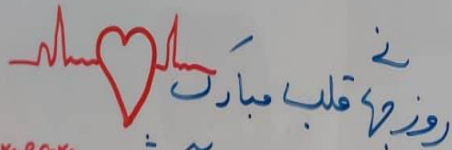 روز جهانے قلب مبارک